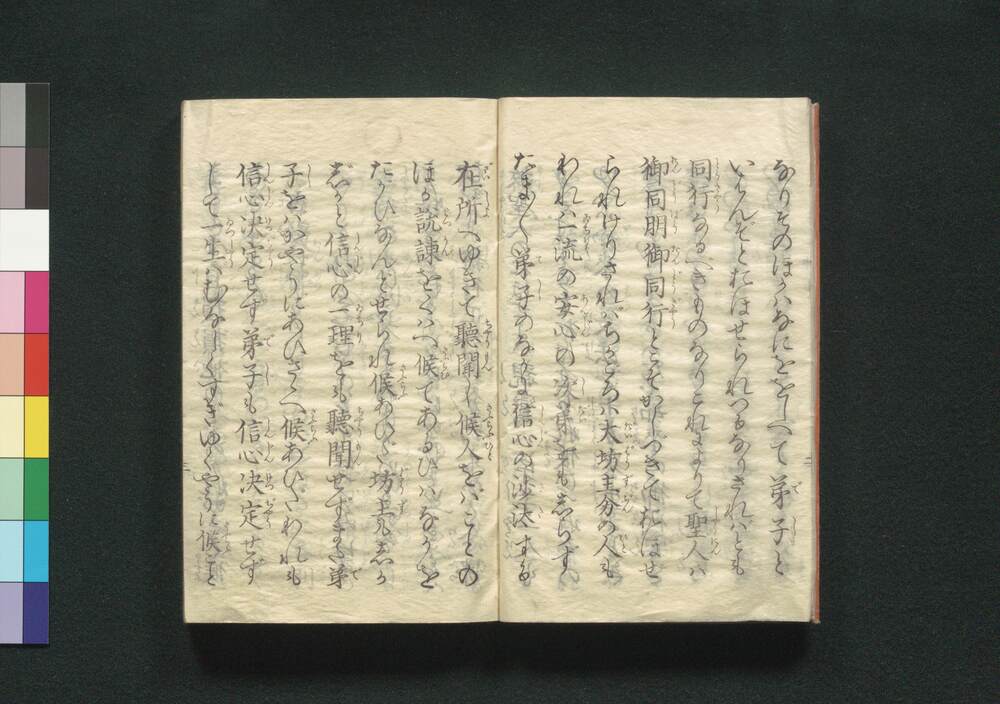 なりそのほかハなにををしへて弟子と
いはんぞとおほせられつるなりされバとも
同行なるへきものなりこれによりて聖人ハ
御同朋御同行とこそかしづきておほせ
られけりされバちかごろハ大坊主分の人も
われハ一流の安心の次第をもしらす
たま〱弟子のなかに信心の沙汰する
在所へゆきて聴聞し候人をバことの
ほか説諫をくハへ候てあるひハなかを
たかひなんとせられ候あひた坊主もしか
しかと信心の一理をも聴聞せすまた弟
子をハかやうにあひさゝへ候あひたわれも
信心決定せす弟子も信心決定せず
して一生ハむなしくすぎゆくやうに候こと